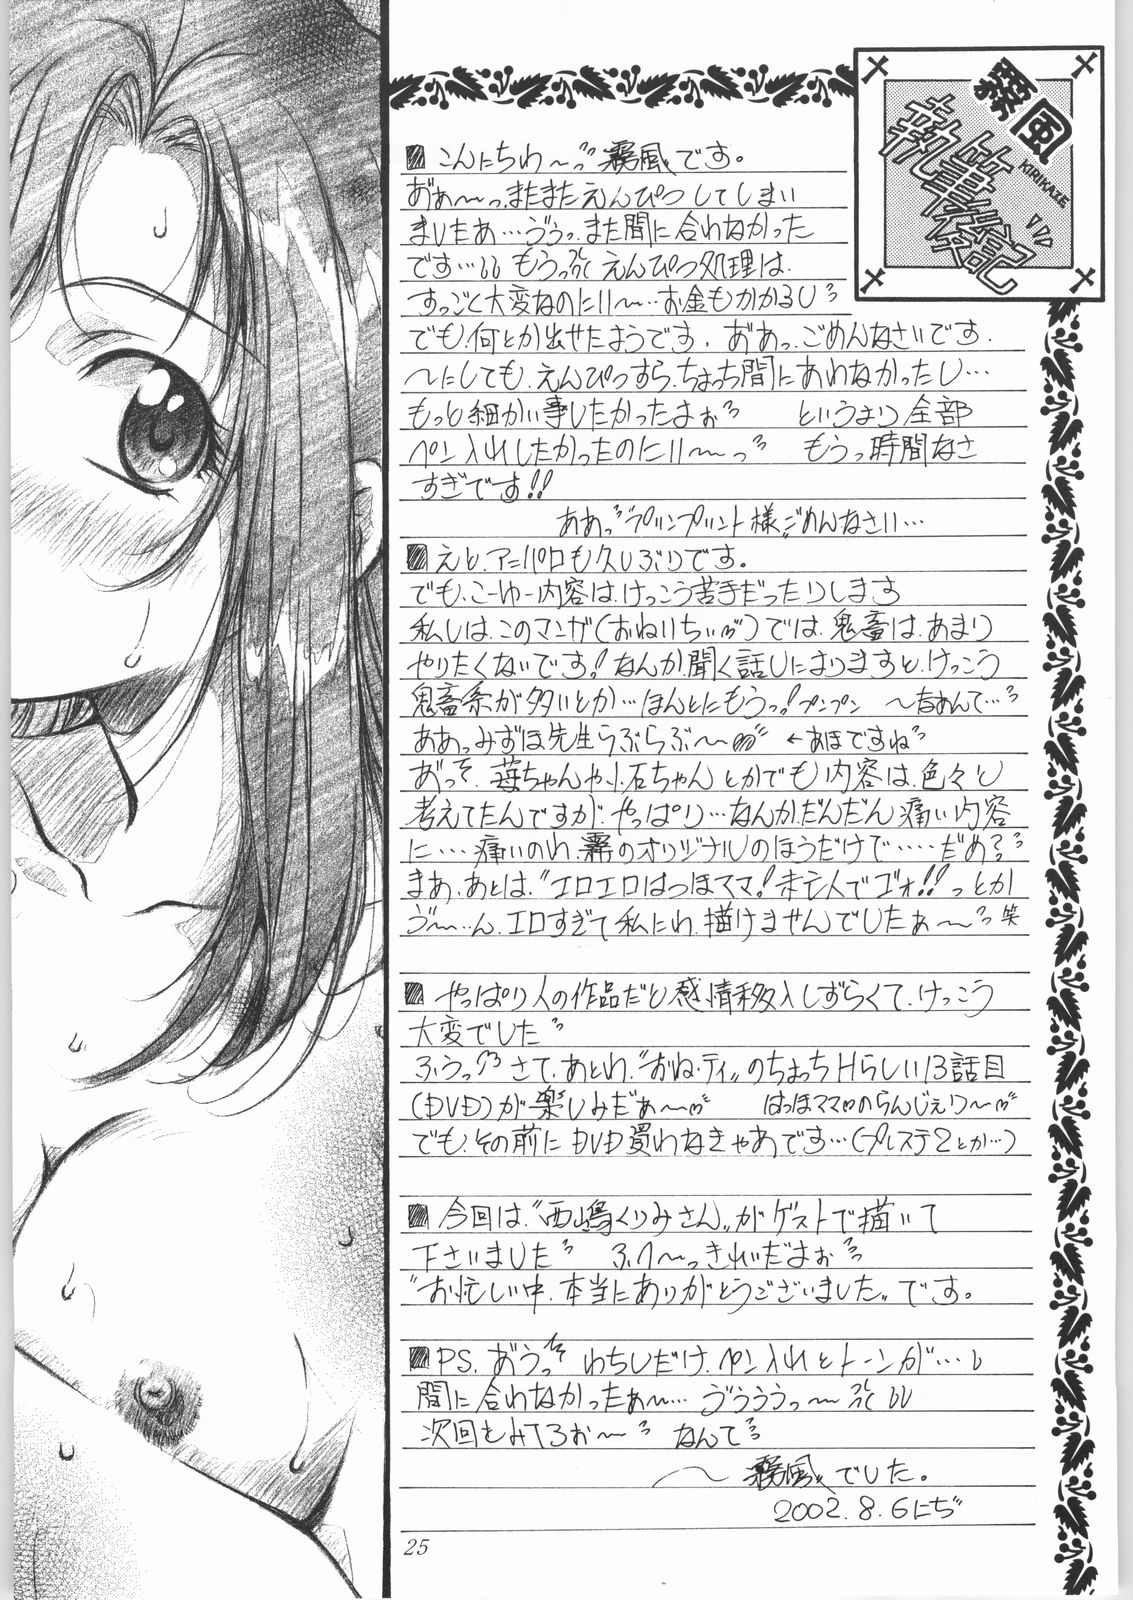 霧風
KIRIKAZE
執筆後記
■こんにちわ～゛霧風です。
おぁ～っ、またまたえんぴつしてしまい
ましたあ…ゔぅっ、また間に合わなかった
です… もうっ えんぴつ処理は、
すっごく大変なのにII～…お金もかかるし
でも、何とか出せたようです、おあっ、ごめんなさいです、
～にしても、えんぴつすら、ちょっち間にあわなかったし…
もっと細かい事したかったよぉ゛ というより全部
ペン入れしたかったのにII～っ゛ もうっ時間なさ
すぎです!!
ああっ゛プリンプリント様゛ごめんなさい…
■えと、アニパロも久しぶりです。
でも、こーゆー内容は、けっこう苦手だったりします
私しは、このマンガ(おねIIちぃ)では、鬼畜は、あまり
やりたくないです!なんか、聞く話しによりますと、けっこう
鬼畜系が多いとか…ほんとにもうっ!プンプン ～なあんて…゛
ああっみずほ先生らぶらぶ～ ←あほですね゛
おっ 苺ちゃんや小石ちゃんとかでも内容は、色々と
考えてたんですが、やっぱり…なんか、だんだん痛い内容
に…・痛いのわ、霧のオリジナルのほうだけで……だめ?゛
まあ、あとは、“エロエロはつほママ!未亡人でゴォ!!”っとか
ゔ～…ん、エロすぎて私にわ、描けませんでしたぁ～゛笑
■やっぱり人の作品だと感情移入しずらくて、けっこう
大変でした゛
ふうっ さて、あとわ、“おね・ティ”のちょっちHらしい13話目
(DVD)が楽しみだぁ～ はつほママのらんじぇりー
でも、その前にDVD買わなきゃあです…(プレステ2とか…)
■今回は、“西嶋くりみさん”がゲストで描いて
下さいました゛ ふわ～っきれいだよぉ゛
“お忙しい中、本当にありがとうございました”です。
■PS. おうっ わちしだけ、ペン入れとトーンが…
間に合わなかったぁ～… ゔぅぅぅっ～
次回をみてろぉ～゛ なんて゛
～霧風でした。
2002.8.6にぢ
25